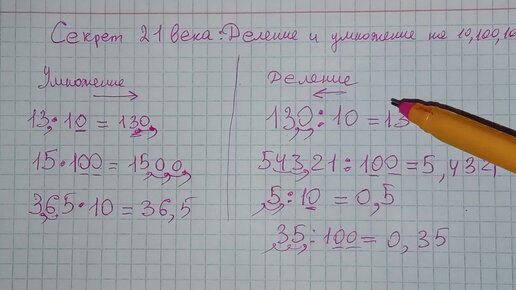 Секрет 21 века: Деление и умножение на 10,100,10
Умножение
13,·10 = 130,
15·100 = 1500,
3,65·10 = 36,5
Деление
130:10 = 13
543,21:100 = 5,4321
5:10 = 0,5
35:100 = 0,35